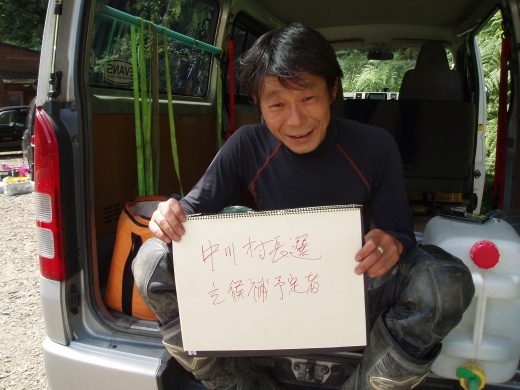 EVANS
中川村長選
立候補予定者